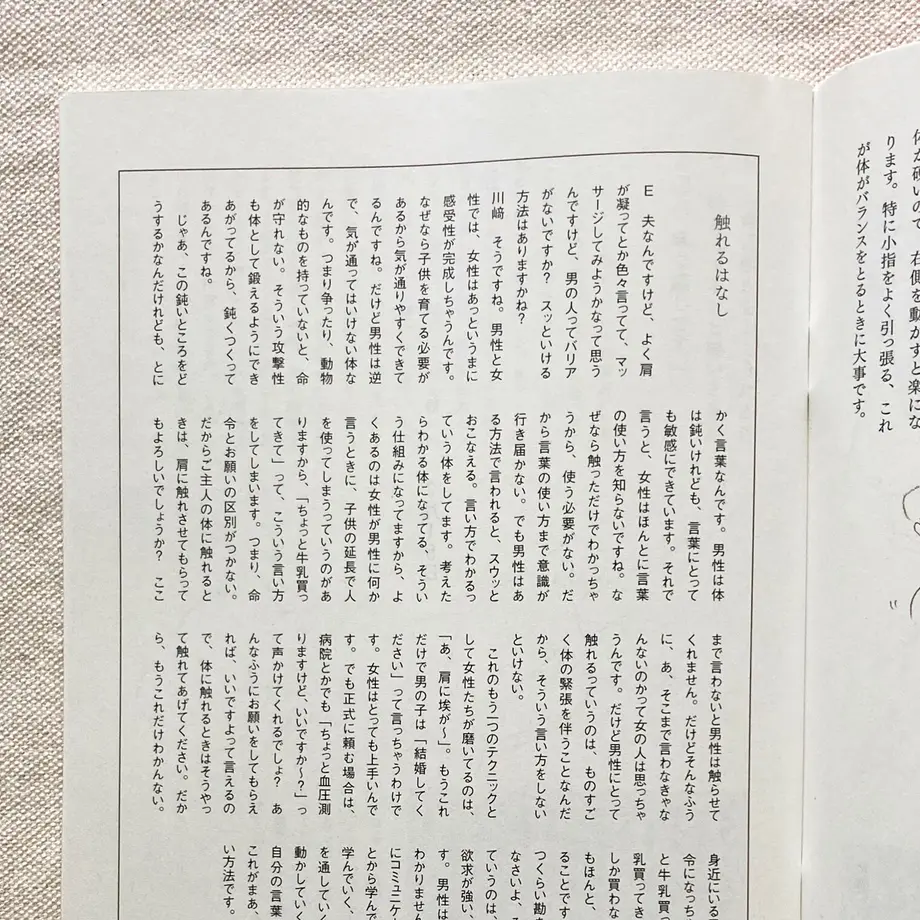 が硬いので、右側を動かすと楽にな
ります。特に小指をよく引っ張る、これ
が体がバランスをとるときに大事です。
触れるはなし
E　夫なんですけど、よく肩
が凝ってとか色々言ってて、マッ
サージしてみようかなって思う
んですけど、男の人ってバリア
がないですか？　スッといける
方法はありますかね？
川﨑　そうですね。男性と女
性では、女性はあっというまに
感受性が完成しちゃうんです。
なぜなら子供を育てる必要が
あるから気が通りやすくできて
るんですね。だけど男性は逆
で、気が通ってはいけない体な
んです。つまり争ったり、動物
的なものを持っていないと、命
が守れない。そういう攻撃性
も体として鍛えるようにでき
あがってるから、鈍くつくって
あるんですね。
じゃあ、この鈍いところをど
うするかなんだけれども、とに
かく言葉なんです。男性は体
は鈍いけれども、言葉にとって
も敏感にできています。それで
言うと、女性はほんとに言葉
の使い方を知らないですね。な
ぜなら触っただけでわかっちゃ
うから、使う必要がない。だ
から言葉の使い方まで意識が
行き届かない。でも男性はあ
る方法で言われると、スウッと
おこなえる。言い方でわかるっ
ていう体をしてます。考えた
らわかる体になってる、そうい
う仕組みになってますから、よ
くあるのは女性が男性に何か
言うときに、子供の延長で人
を使ってしまうっていうのがあ
りますから、「ちょっと牛乳買っ
てきて」って、こういう言い方
をしてしまいます。つまり、命
令とお願いの区別がつかない。
だからご主人の体に触れると
きは、肩に触れさせてもらって
もよろしいでしょうか？　ここ
まで言わないと男性は触らせて
くれません。だけどそんなふう
に、あ、そこまで言わなきゃな
んないのかって女の人は思っちゃ
うんです。だけど男性にとって
触れるっていうのは、ものすご
く体の緊張を伴うことなんだ
から、そういう言い方をしない
といけない。
これのもう一つのテクニックと
して女性たちが磨いてるのは、
「あ、肩に埃が〜」。もうこれ
だけで男の子は「結婚してく
ださい」って言っちゃうわけで
す。女性はとっても上手いんで
す。でも正式に頼む場合は、
病院とかでも「ちょっと血圧測
りますけど、いいですか〜？」っ
て声かけてくれるでしょ？　あ
んなふうにお願いをしてもらえ
れば、いいですよって言えるの
で、体に触れるときはそうやっ
て触れてあげてください。だか
ら、もうこれだけわかんない。
身近にいる
令になっち
と牛乳買っ
乳買ってき
しか買わな
もほんと、
ることです
つくらい勘
なさいよ、
ていうのは、
欲求が強い、
す。男性は
わかりません
にコミュニケ
とから学んで
学んでいく、
を通していく
動かしていく
自分の言葉
これがまあ、
い方法です。